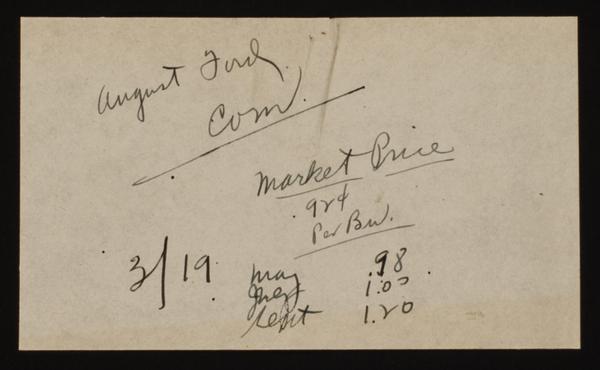 August Ford
Corn
Market Price
92¢
Per Bu.
3/19
May .98
July 1.00
Sept 1.20